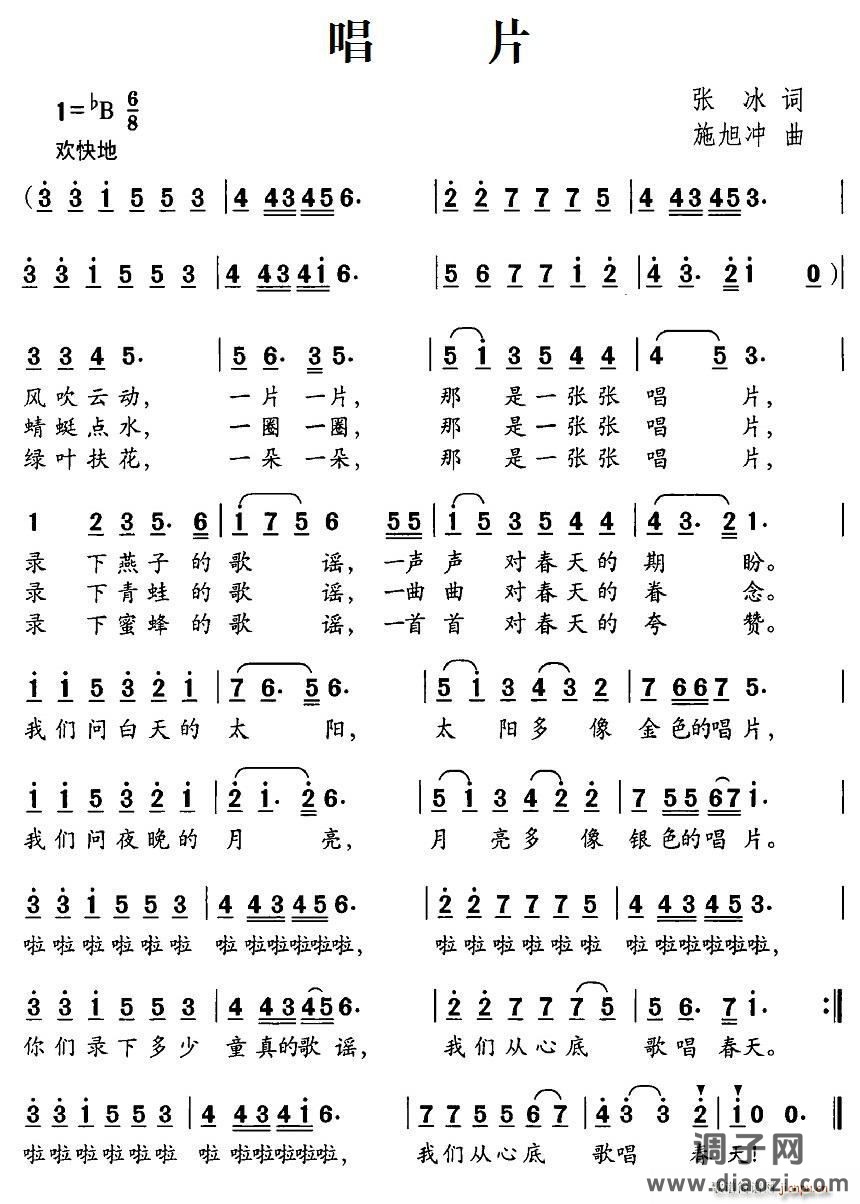 唱 片
1=♭B 6/8
张 冰 词
欢快地
施旭冲 曲
(3̇ 3̇ 1̇ 5 5 3 | 4 43456. | 2̇ 2̇ 7 7 7 5 | 4 43453. |
3̇ 3̇ 1̇ 5 5 3 | 4 4341̇6. | 5 6 7 7 1̇ 2̇ | 4̇ 3̇. 2̇1̇ 0)|
3 3 4 5. | 5 6. 3 5. | 5 1̇ 3 5 4 4 | 4 5 3. |
风吹云动, 一片 一片, 那 是一张张 唱 片,
蜻蜓点水, 一圈 一圈, 那 是一张张 唱 片,
绿叶扶花, 一朵 一朵, 那 是一张张 唱 片,
1 2 3 5. 6 | 1̇ 7 5 6 55 | 1̇ 5 3 5 4 4 | 4 3. 2 1. |
录 下燕子的歌 谣, 一声声 对春天的 期 盼。
录 下青蛙的歌 谣, 一曲曲 对春天的 眷 念。
录 下蜜蜂的歌 谣, 一首首 对春天的 夸 赞。
1̇ 1̇ 5 3̇ 2̇ 1̇ | 7 6. 5 6. | 5 1̇ 3 4 3 2 | 6 7 667 5. |
我们问白天的 太 阳, 太 阳多 像 金色的唱片,
1̇ 1̇ 5 3̇ 2̇ 1̇ | 2̇ 1̇. 2̇ 6. | 5 1̇ 3 4 2̇ 2̇ | 7 55671̇. |
我们问夜晚的 月 亮, 月 亮多 像 银色的唱片。
3̇ 3̇ 1̇ 5 5 3 | 4 43456. | 2̇ 2̇ 7 7 7 5 | 4 43453. |
啦啦啦啦啦啦 啦 啦啦啦啦啦, 啦啦啦啦啦啦 啦 啦啦啦啦啦,
3̇ 3̇ 1̇ 5 5 3 | 4 43456. | 2̇ 2̇ 7 7 7 5 | 5 6. 7 1̇. :‖
你们录下多少 童真的歌谣, 我们从心底 歌唱 春天。
3̇ 3̇ 1̇ 5 5 3 | 4 4341̇6. | 7 7 5 5 6 7 | 4̇ 3̇ 3̇ 2̇ | 1̇ 0 0. ‖
啦啦啦啦啦啦 啦 啦啦啦啦啦, 我们从心底 歌唱 春天!
调子网
www.diaozi.com